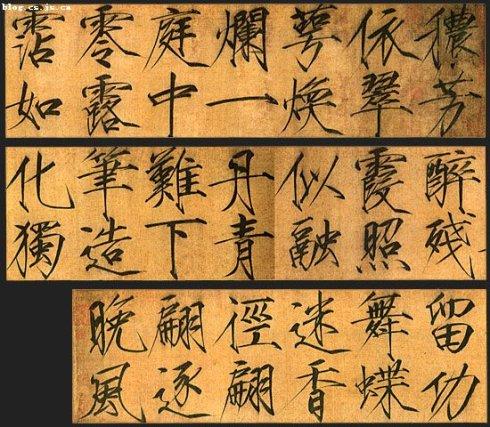 blog.cs.js.ca
穠芳
依翠
萼煥
爛一
庭中
零露
霑如
醉殘
霞照
似融
丹青
難下
筆造
化獨
留功
舞蝶
迷香
徑翩
翩逐
晚風